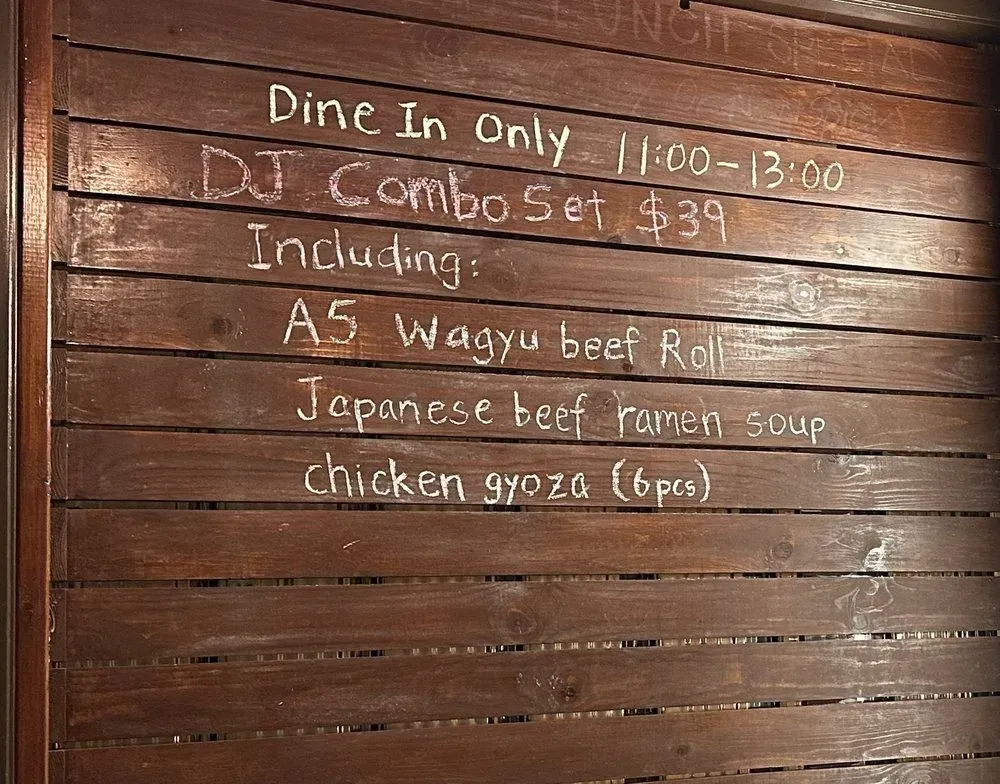 LUNCH SPECIAL
Dine In Only 11:00-13:00
DJ Combo Set $39
Including:
A5 Wagyu beef Roll
Japanese beef ramen soup
chicken gyoza (6pcs)